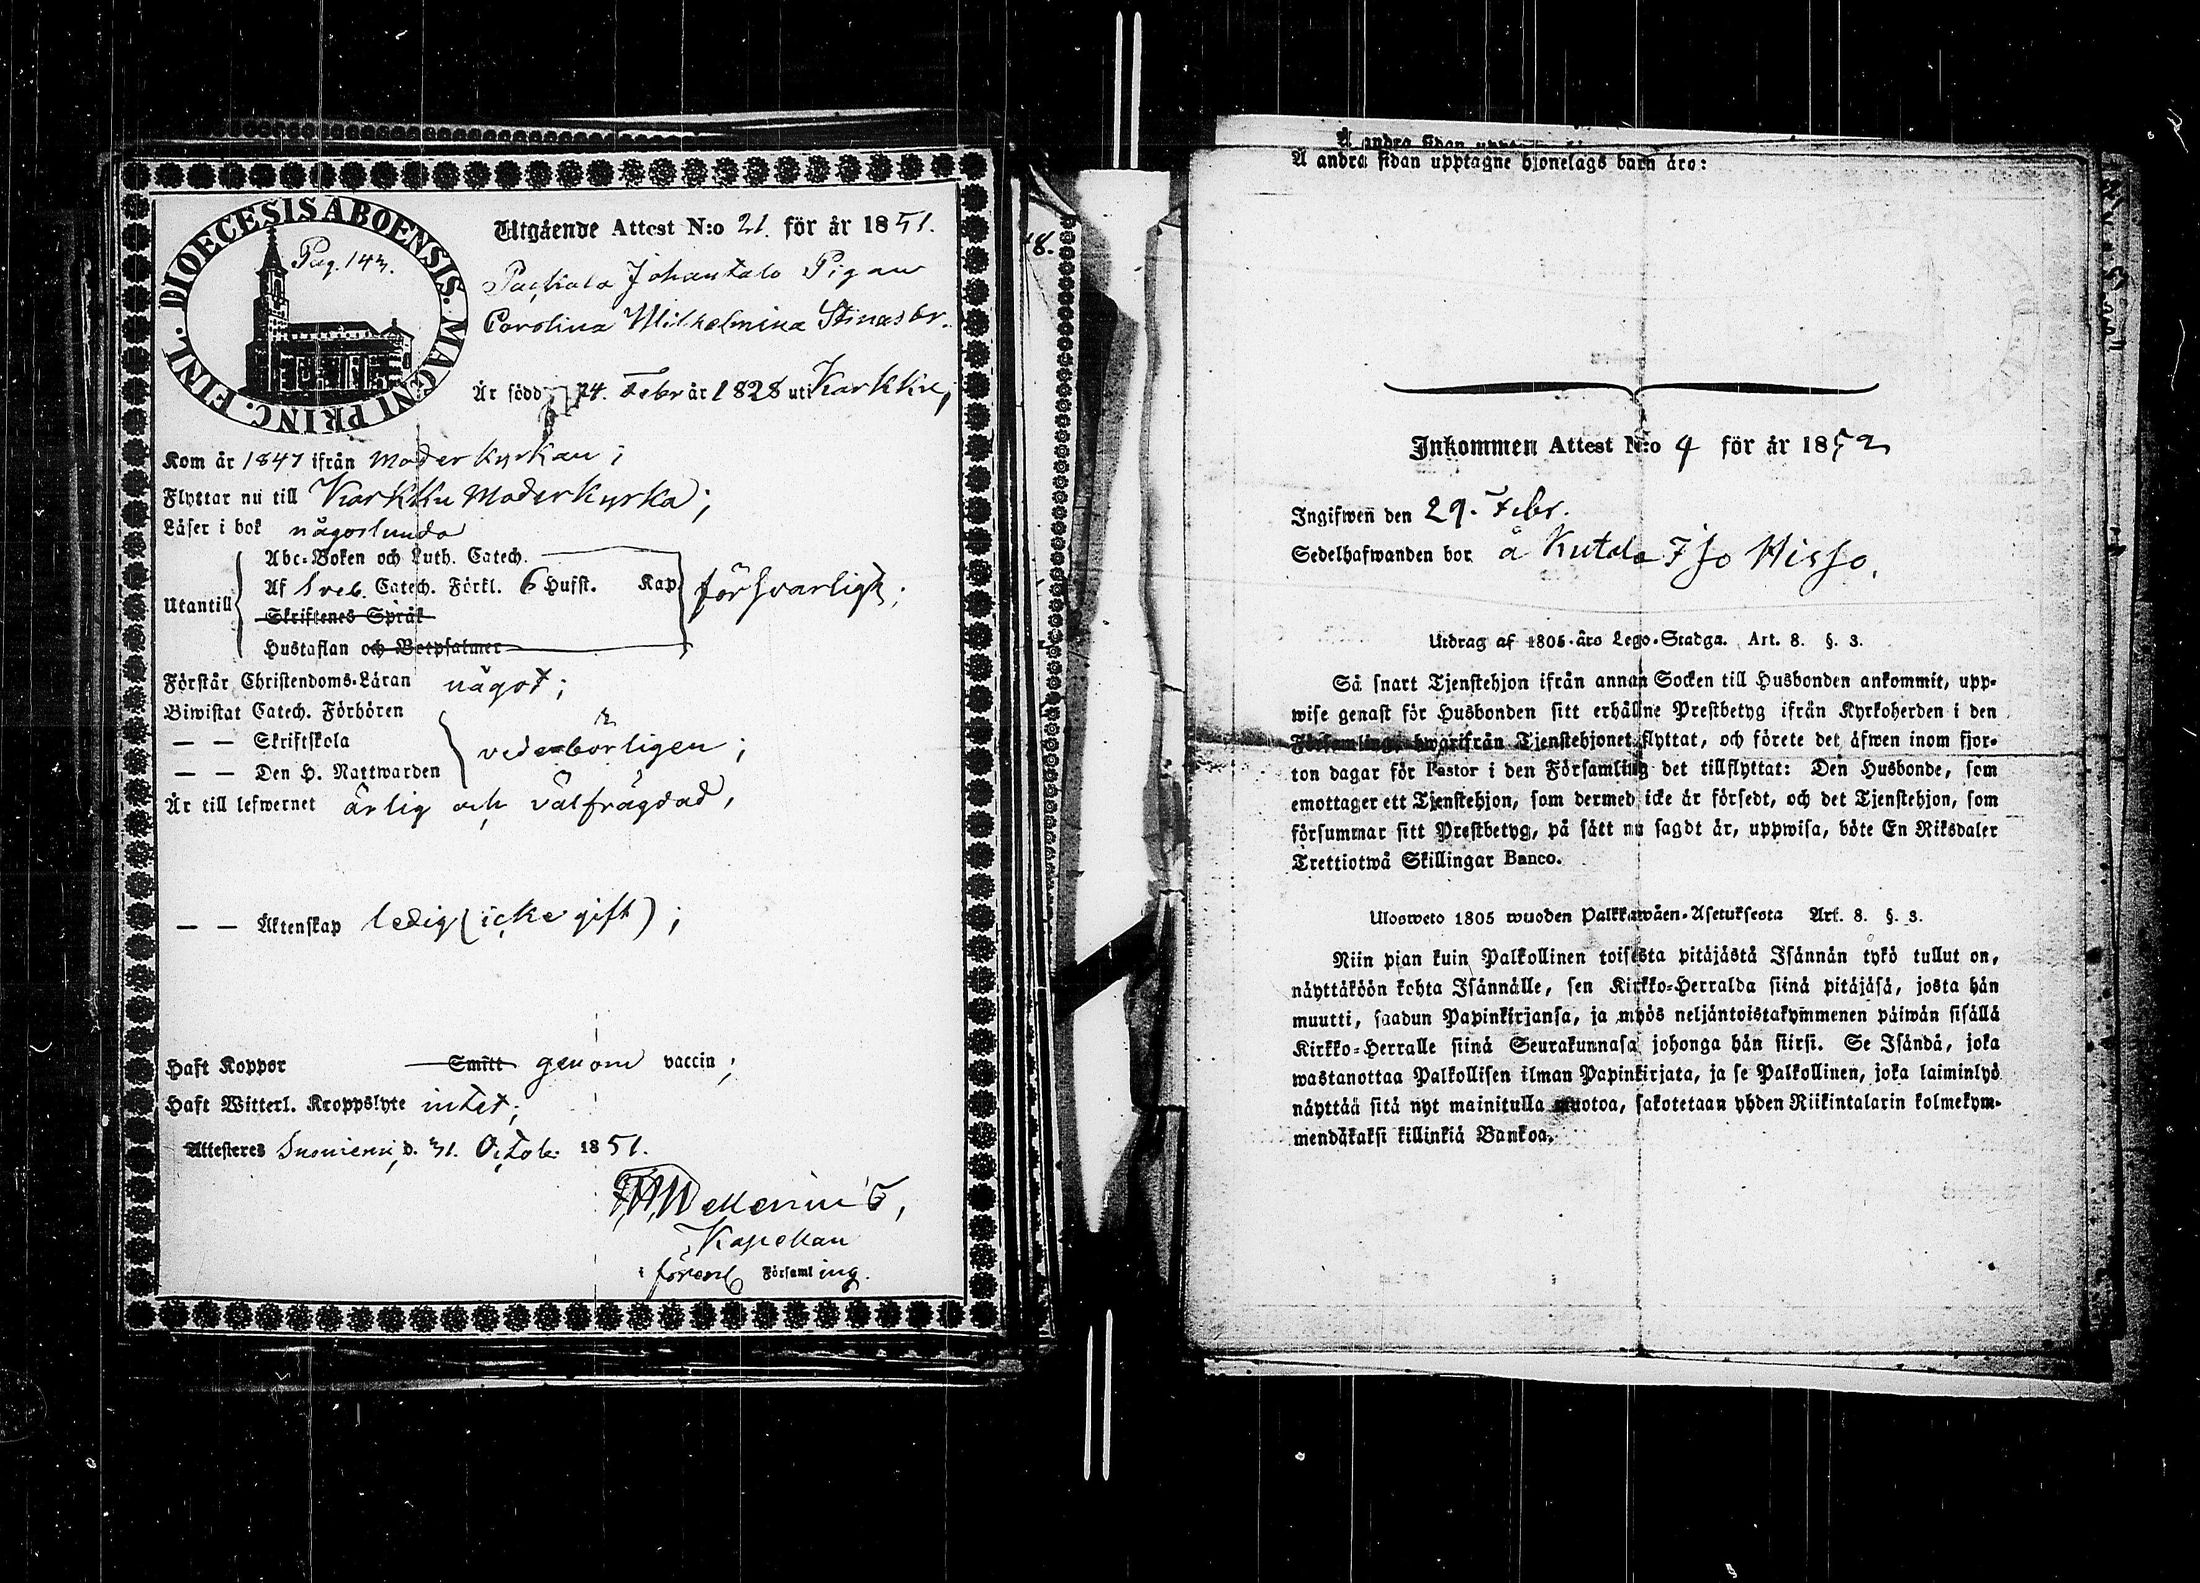 DIOECESIS ABOENSIS. MAGNI PRINC. FINL.
Pag. 143.
Utgående Attest N:o 21. för år 1851.
Johantalo Pigan
Carolina Wilhelmina Stinasdr.
Är född 24. Febr år 1828 uti Karkku,
Kom år 1847 ifrån Moderkyrkan;
Flyttar nu till Karkku Moderkyrka;
Läser i bok någorlunda
Utantill
Abc-Boken och Luth. Catech.
Af Sveb. Catech. Förkl. 6 Hufst. Kap
försvarligt;
Skriftenes Språk
Hustaflan och Botpsalmer
Förstår Christendoms-Läran något;
Biwistat Catech. Förhören
— — Skriftskola
vederbörligen;
— — Den H. Nattwarden
Är till lefwernet ärlig och välfrägdad,
— — Äktenskap ledig (icke gift);
Haft Koppor Smitt genom vaccin;
Haft Witterl. Kroppslyte intet;
Attesteres Suoniemi d. 31. Octob. 1851.
Kapellan
i förend Församling.
48.
Å andra sidan upptagne hjonelags barn äro:
Inkommen Attest N:o 4 för år 1852
Ingifwen den 29. Febr.
Sedelhafwanden bor å Kutala Iso Hisso.
Utdrag af 1805 års Lego-Stadga. Art. 8. §. 3.
Så snart Tjenstehjon ifrån annan Socken till Husbonden ankommit, upp-
wise genast för Husbonden sitt erhållne Prestbetyg ifrån Kyrkoherden i den
Församling, hwarifrån Tjenstehjonet flyttat, och förete det äfwen inom fjor-
ton dagar för Pastor i den Församling det tillflyttat: Den Husbonde, som
emottager ett Tjenstehjon, som dermed icke är försedt, och det Tjenstehjon, som
försummar sitt Prestbetyg, på sätt nu sagdt är, uppwisa, böte En Riksdaler
Trettiotwå Skillingar Banco.
Ulosweto 1805 wuoden Palkkawäen-Asetuksesta Art. 8. §. 3.
Niin pian kuin Palkollinen toisesta pitäjästä Isännän tykö tullut on,
näyttäköön kohta Isännälle, sen Kirkko-Herralda siinä pitäjäsä, josta hän
muutti, saadun Papinkirjansa, ja myös neljäntoistakymmenen päiwän sisällä
Kirkko-Herralle siinä Seurakunnasa johonga hän siirsi. Se Isändä, joka
wastanottaa Palkollisen ilman Papinkirjata, ja se Palkollinen, joka laiminlyö
näyttää sitä nyt mainitulla muotoa, sakotetaan yhden Riikintalarin kolmekym-
mendäkaksi killinkiä Bankoa.